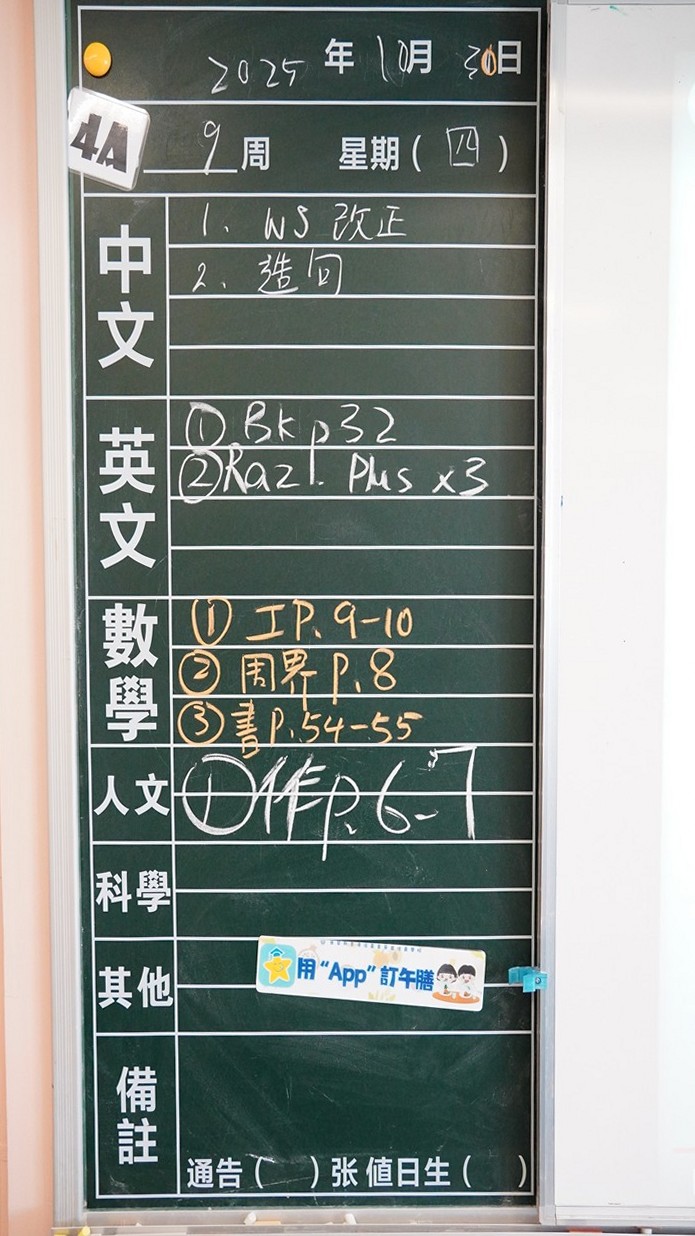 2025 年 10月 30日
4A
9 周 星期( 四 )
中文
1. WS 改正
2. 造句
英文
① Bk p32
② Raz P. Plus x3
數學
① 工P. 9-10
② 周界 P. 8
③ 書P. 54-55
人文
① 作p. 6-7
科學
其他
用“App”訂午膳
備註
通告( )张 値日生( )